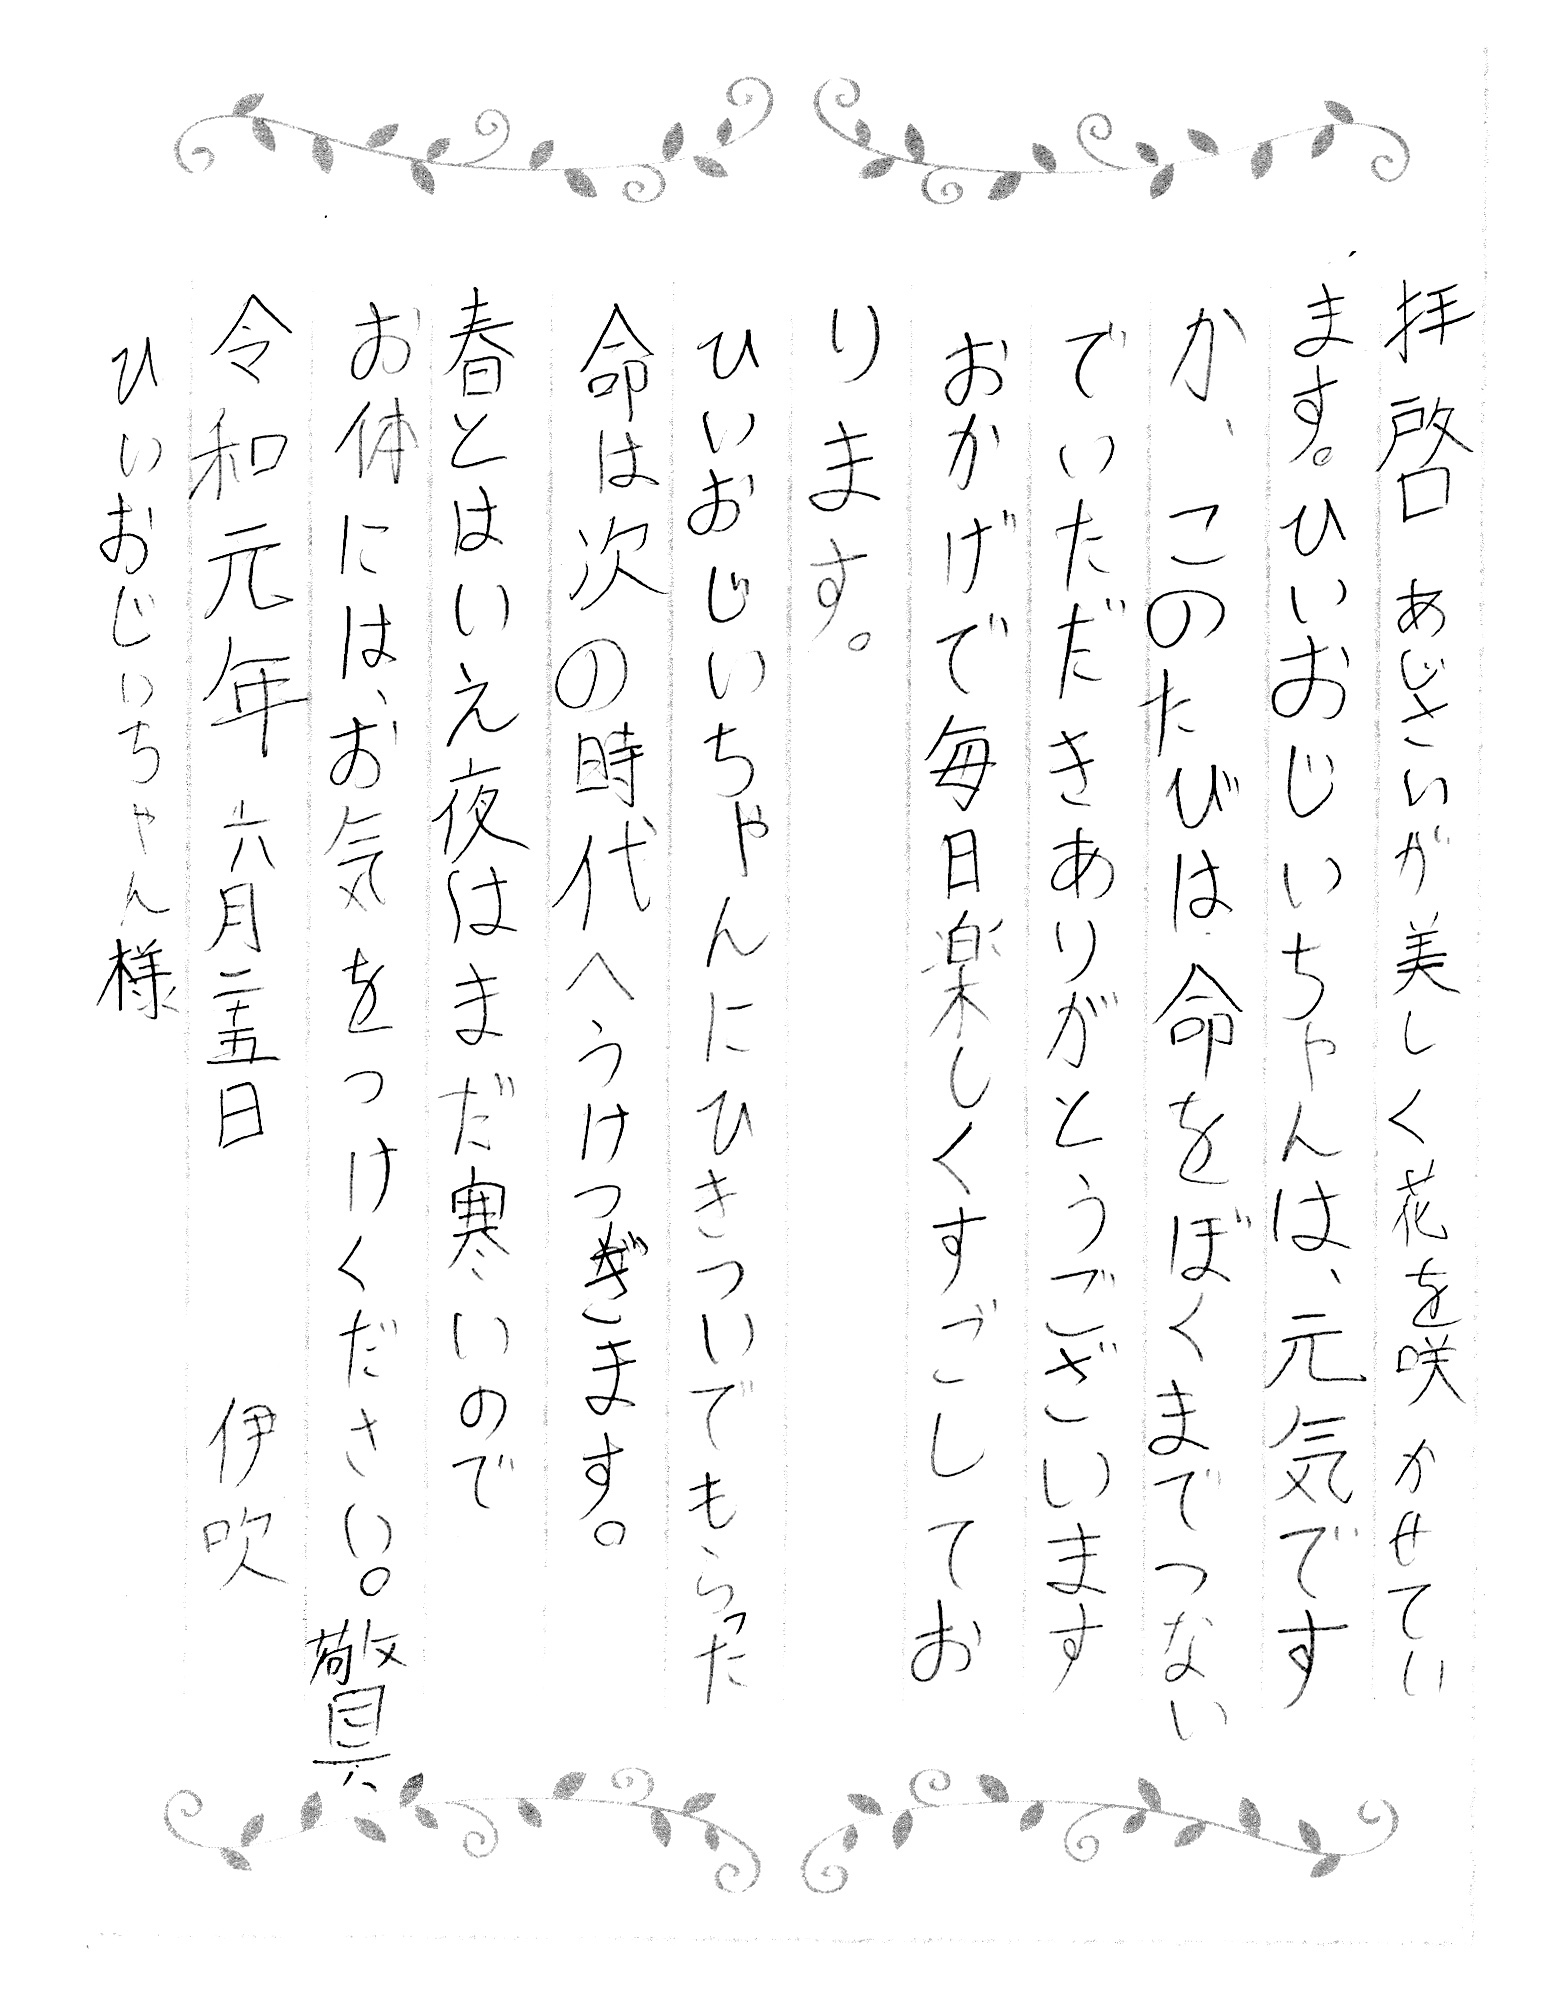 拝啓 あじさいが美しく花を咲かせてい
ます。ひいおじいちゃんは、元気です
か、このたびは命をぼくまでつない
でいただきありがとうございます
おかげで毎日楽しくすごしてお
ります。
ひいおじいちゃんにひきついでもらった
命は次の時代へうけつぎます。
春とはいえ夜はまだ寒いので
お体には、お気をつけください。敬具
令和元年 六月二十五日 伊吹
ひいおじいちゃん様